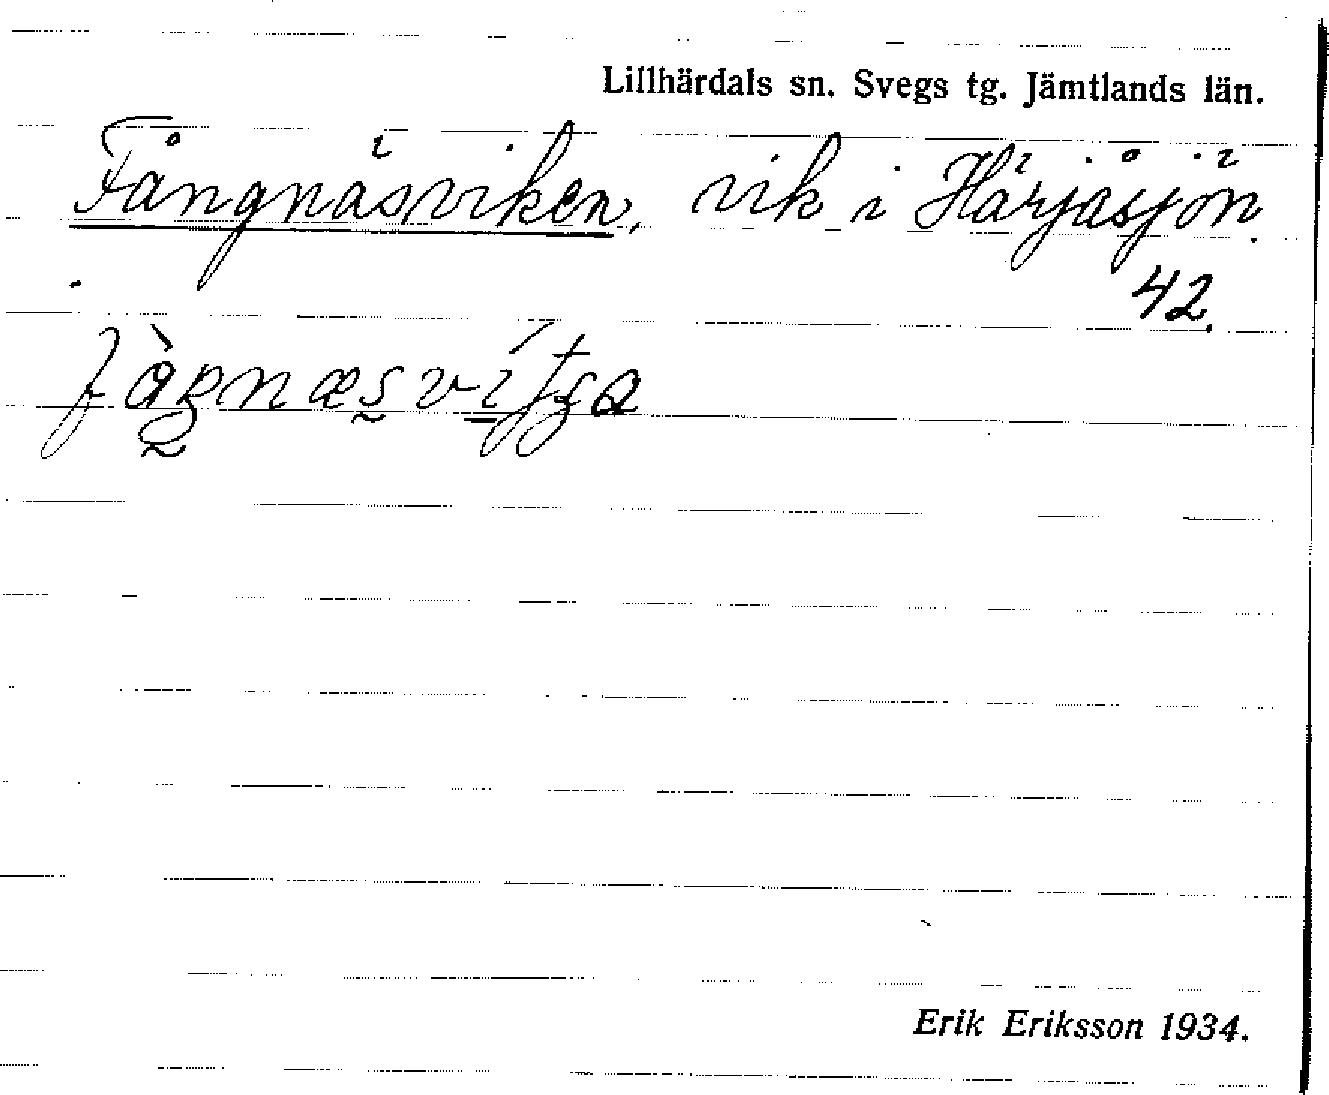 Lillhärdals sn. Svegs tg. Jämtlands län.
Fångnäsviken, vik i Härjåsjön.
42.
Erik Eriksson 1934.